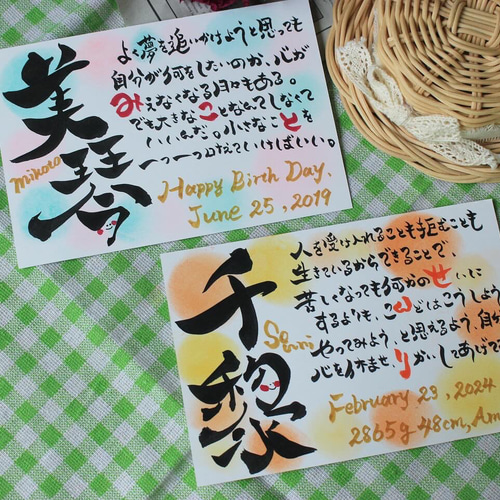 美琴
Mikoto
よく夢を追いかけようと思っても
自分が何をしたいのか、心が
みえなくなる日々もある。
でも大きなことなんてしなくて
いいんだ。小さなことを
一つ一つ叶えていけばいい。
Happy Birth Day,
June 25, 2019
千梨
Senri
人を受け入れることも拒むことも
生きているからできることで、
苦しくなっても何かのせいに
するよりも、こんどはこうしよう
やってみよう、と思えるよう、自分
心を休ませ、りかいしてあげて
February 29, 2024
2865g 48cm, Am